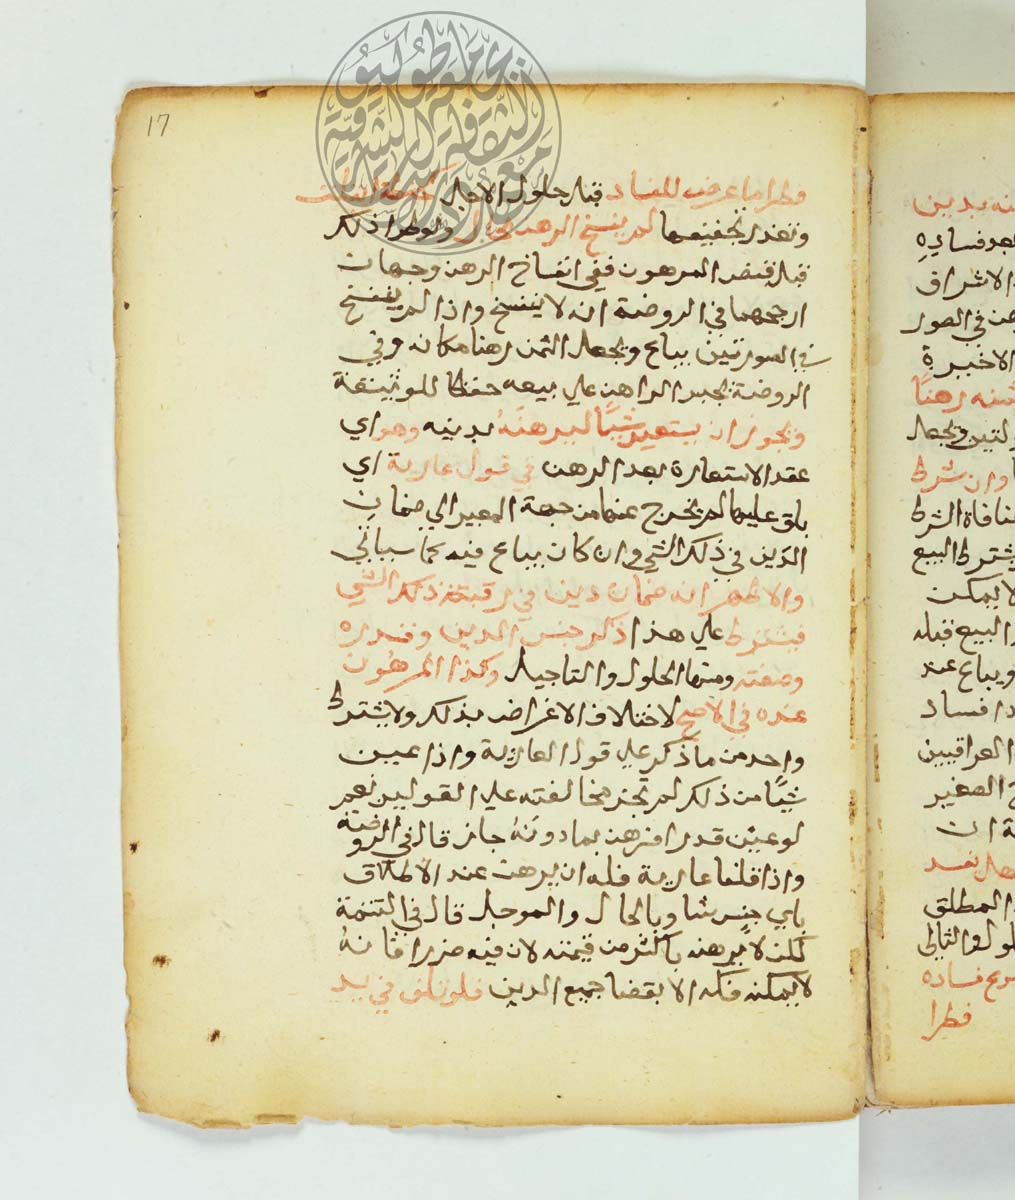 17
فطرا ما عرض للفساد قبل حلول الاجل كحنطة ابتلت
وتعذر تجفيفها لم ينفسخ الرهن بحال ولو طرا ذلك
قبل قبض المرهون ففي انفساخ الرهن وجهان
ارجحهما في الروضة انه لا ينفسخ واذا لم ينفسخ
في الصورتين يباع ويجعل الثمن رهنا مكانه وفي
الروضة يجبر الراهن علي بيعه حفظا للوثيقة
ويجوز ان يستعير شيًا ليرهنه بدينه وهو اي
عقد الاستعارة بعد الرهن في قول عارية اي
باق عليها لم يخرج عنها من جهة المعير الي ضمان
الدين في ذلك الشي وان كان يباع فيه كما سياتي
والاظهر انه ضمان دين في رقبة ذلك الشي
فيشترط علي هذا ذكر جنس الدين وقدره
وصفته ومنها الحلول والتاجيل وكذا المرهون
عنده في الاصح لاختلاف الاغراض بذلك ولا يشترط
واحد من ما ذكر علي قول العارية واذا عين
شيًا من ذلك لم تجز مخالفته علي القولين نعم
لو عين قدرا فرهن بما دونه جاز قال في الروضة
واذا قلنا عارية فله ان يرهن عند الاطلاق
باي جنس شا وبالحال والموجل قال في التتمة
لكن لا يرهنه باكثر من قيمته لان فيه ضررا فانه
لا يمكنه فكه الا بقضا جميع الدين فلو تلف في يد
نه بدين
فساده
الاشراف
في الصور
الاخيرة
ثمنه رهنًا
ويجعل
وان شرط
منافاة الشرط
يشترط البيع
لا يمكن
البيع قبله
ويباع عند
فساد
العراقيين
الصغير
ان
المطلق
فساده
فطرا